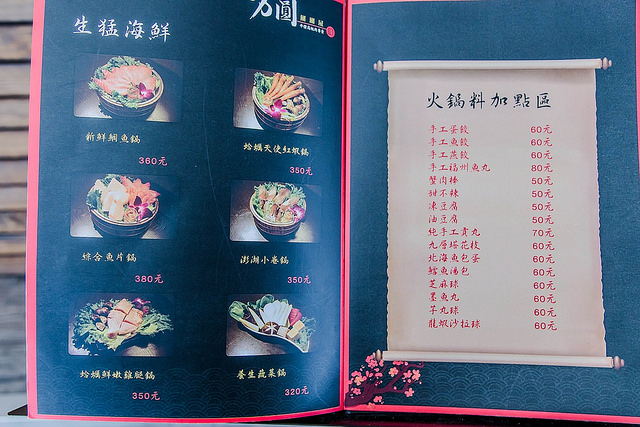 生猛海鮮
方圓
新鮮鯛魚鍋
360元
蛤蠣天使紅蝦鍋
350元
綜合魚片鍋
380元
澎湖小卷鍋
350元
蛤蠣鮮嫩雞腿鍋
350元
養生蔬菜鍋
320元
火鍋料加點區
手工蛋餃 60元
手工魚餃 60元
手工燕餃 60元
手工福州魚丸 80元
蟹肉棒 50元
甜不辣 50元
凍豆腐 50元
油豆腐 50元
純手工貢丸 70元
九層塔花枝 60元
北海魚包蛋 60元
鱈魚湯包 60元
芝麻球 60元
墨魚丸 60元
芋丸球 60元
龍蝦沙拉球 60元